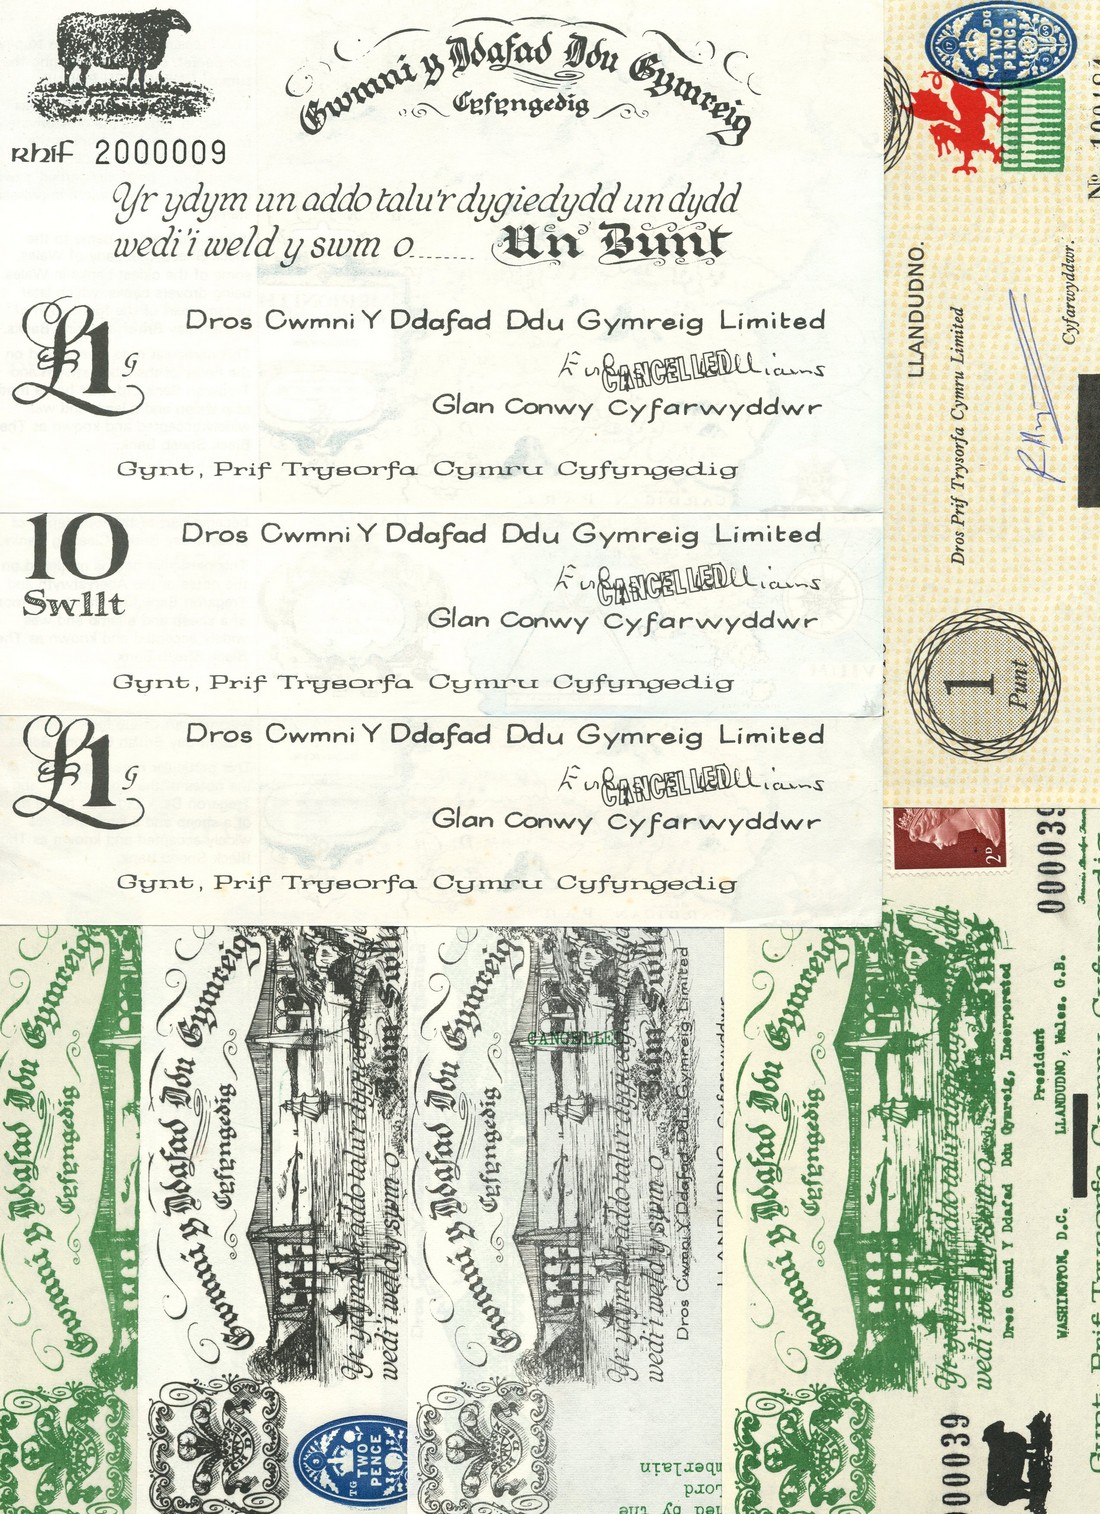 Cwmni y Ddafad Ddu Gymreig
Cyfyngedig
Rhif 2000009
Yr ydym un addo talu'r dygiedydd un dydd
wedi'i weld y swm o........ Un Bunt
£1 G
Dros Cwmni Y Ddafad Ddu Gymreig Limited
CANCELLED
Glan Conwy Cyfarwyddwr
Gynt, Prif Trysorfa Cymru Cyfyngedig
10
Swllt
Dros Cwmni Y Ddafad Ddu Gymreig Limited
CANCELLED
Glan Conwy Cyfarwyddwr
Gynt, Prif Trysorfa Cymru Cyfyngedig
£1 G
Dros Cwmni Y Ddafad Ddu Gymreig Limited
CANCELLED
Glan Conwy Cyfarwyddwr
Gynt, Prif Trysorfa Cymru Cyfyngedig
TWO
PENCE
DG
LLANDUDNO.
Dros Prif Trysorfa Cymru Limited
Cyfarwyddwr.
1
Punt
2D
00003
Cwmni y Ddafad Ddu Gymreig
Cyfyngedig
Cwmni y Ddafad Ddu Gymreig
Cyfyngedig
Yr ydym un addo talu'r dygiedydd un dydd
wedi'i weld y swm o
TG
TWO
PENCE
Cwmni y Ddafad Ddu Gymreig
Cyfyngedig
CANCELLE
Yr ydym un addo talu'r dygiedydd un dydd
wedi'i weld y swm o
Dros Cwmni Y Ddafad Ddu Gymreig Limited
LLANDUDNO Cyfarwyddwr
mberlain
Lord
ed by the
Cwmni y Ddafad Ddu Gymreig
Cyfyngedig
Yr ydym un addo talu'r dygiedydd un dydd
wedi'i weld y swm o
Dros Cwmni Y Ddafad Ddu Gymreig, Incorporated
President
WASHINGTON, D.C. LLANDUDNO, Wales. G.B.
00039
Gynt, Prif Trysorfa Cymru Cyfyngedig